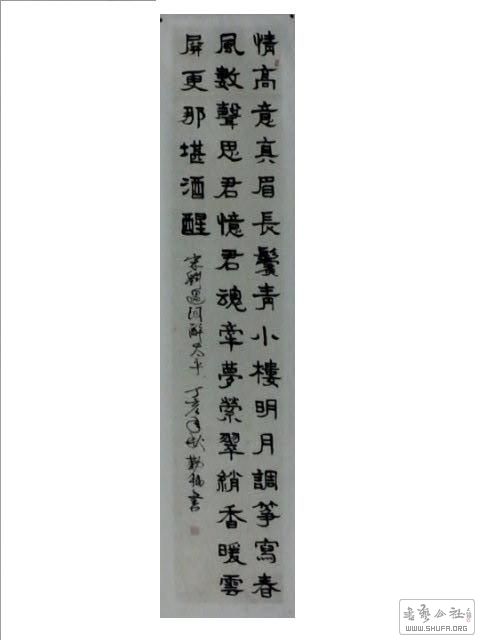 情高意真眉長鬢青小樓明月調箏寫春
風數聲思君憶君魂牽夢縈翠綃香暖雲
屏更那堪酒醒
宋劉過詞醉太平 丁亥年秋 書
書藝公社
WWW.SHUFA.ORG